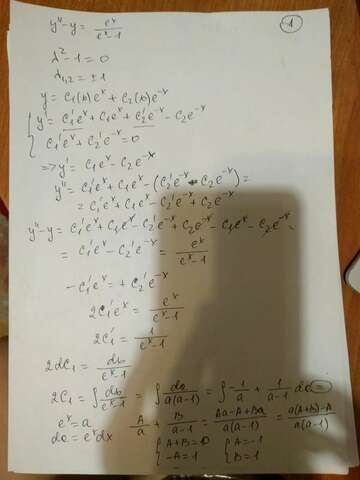 -1
y'' - y = e^x / (e^x - 1)
λ² - 1 = 0
λ₁,₂ = ±1
y = C₁(x)e^x + C₂(x)e^-x
{ y' = C₁'e^x + C₁e^x + C₂'e^-x - C₂e^-x
C₁'e^x + C₂'e^-x = 0
=> y' = C₁e^x - C₂e^-x
y'' = C₁'e^x + C₁e^x - (C₂'e^-x - C₂e^-x) =
= C₁'e^x + C₁e^x - C₂'e^-x + C₂e^-x
y'' - y = C₁'e^x + C₁e^x - C₂'e^-x + C₂e^-x - C₁e^x - C₂e^-x =
= C₁'e^x - C₂'e^-x = e^x / (e^x - 1)
-C₁'e^x = + C₂'e^-x
2C₁'e^x = e^x / (e^x - 1)
2C₁' = 1 / (e^x - 1)
2dC₁ = dx / (e^x - 1)
2C₁ = ∫ dx / (e^x - 1) = ∫ da / a(a-1) = ∫ -1/a + 1/(a-1) da =
e^x = a
da = e^x dx
A/a + B/(a-1) = (Aa - A + Ba) / a(a-1) = (a(A+B) - A) / a(a-1)
{ A + B = 0 { A = -1
-A = 1 B = 1